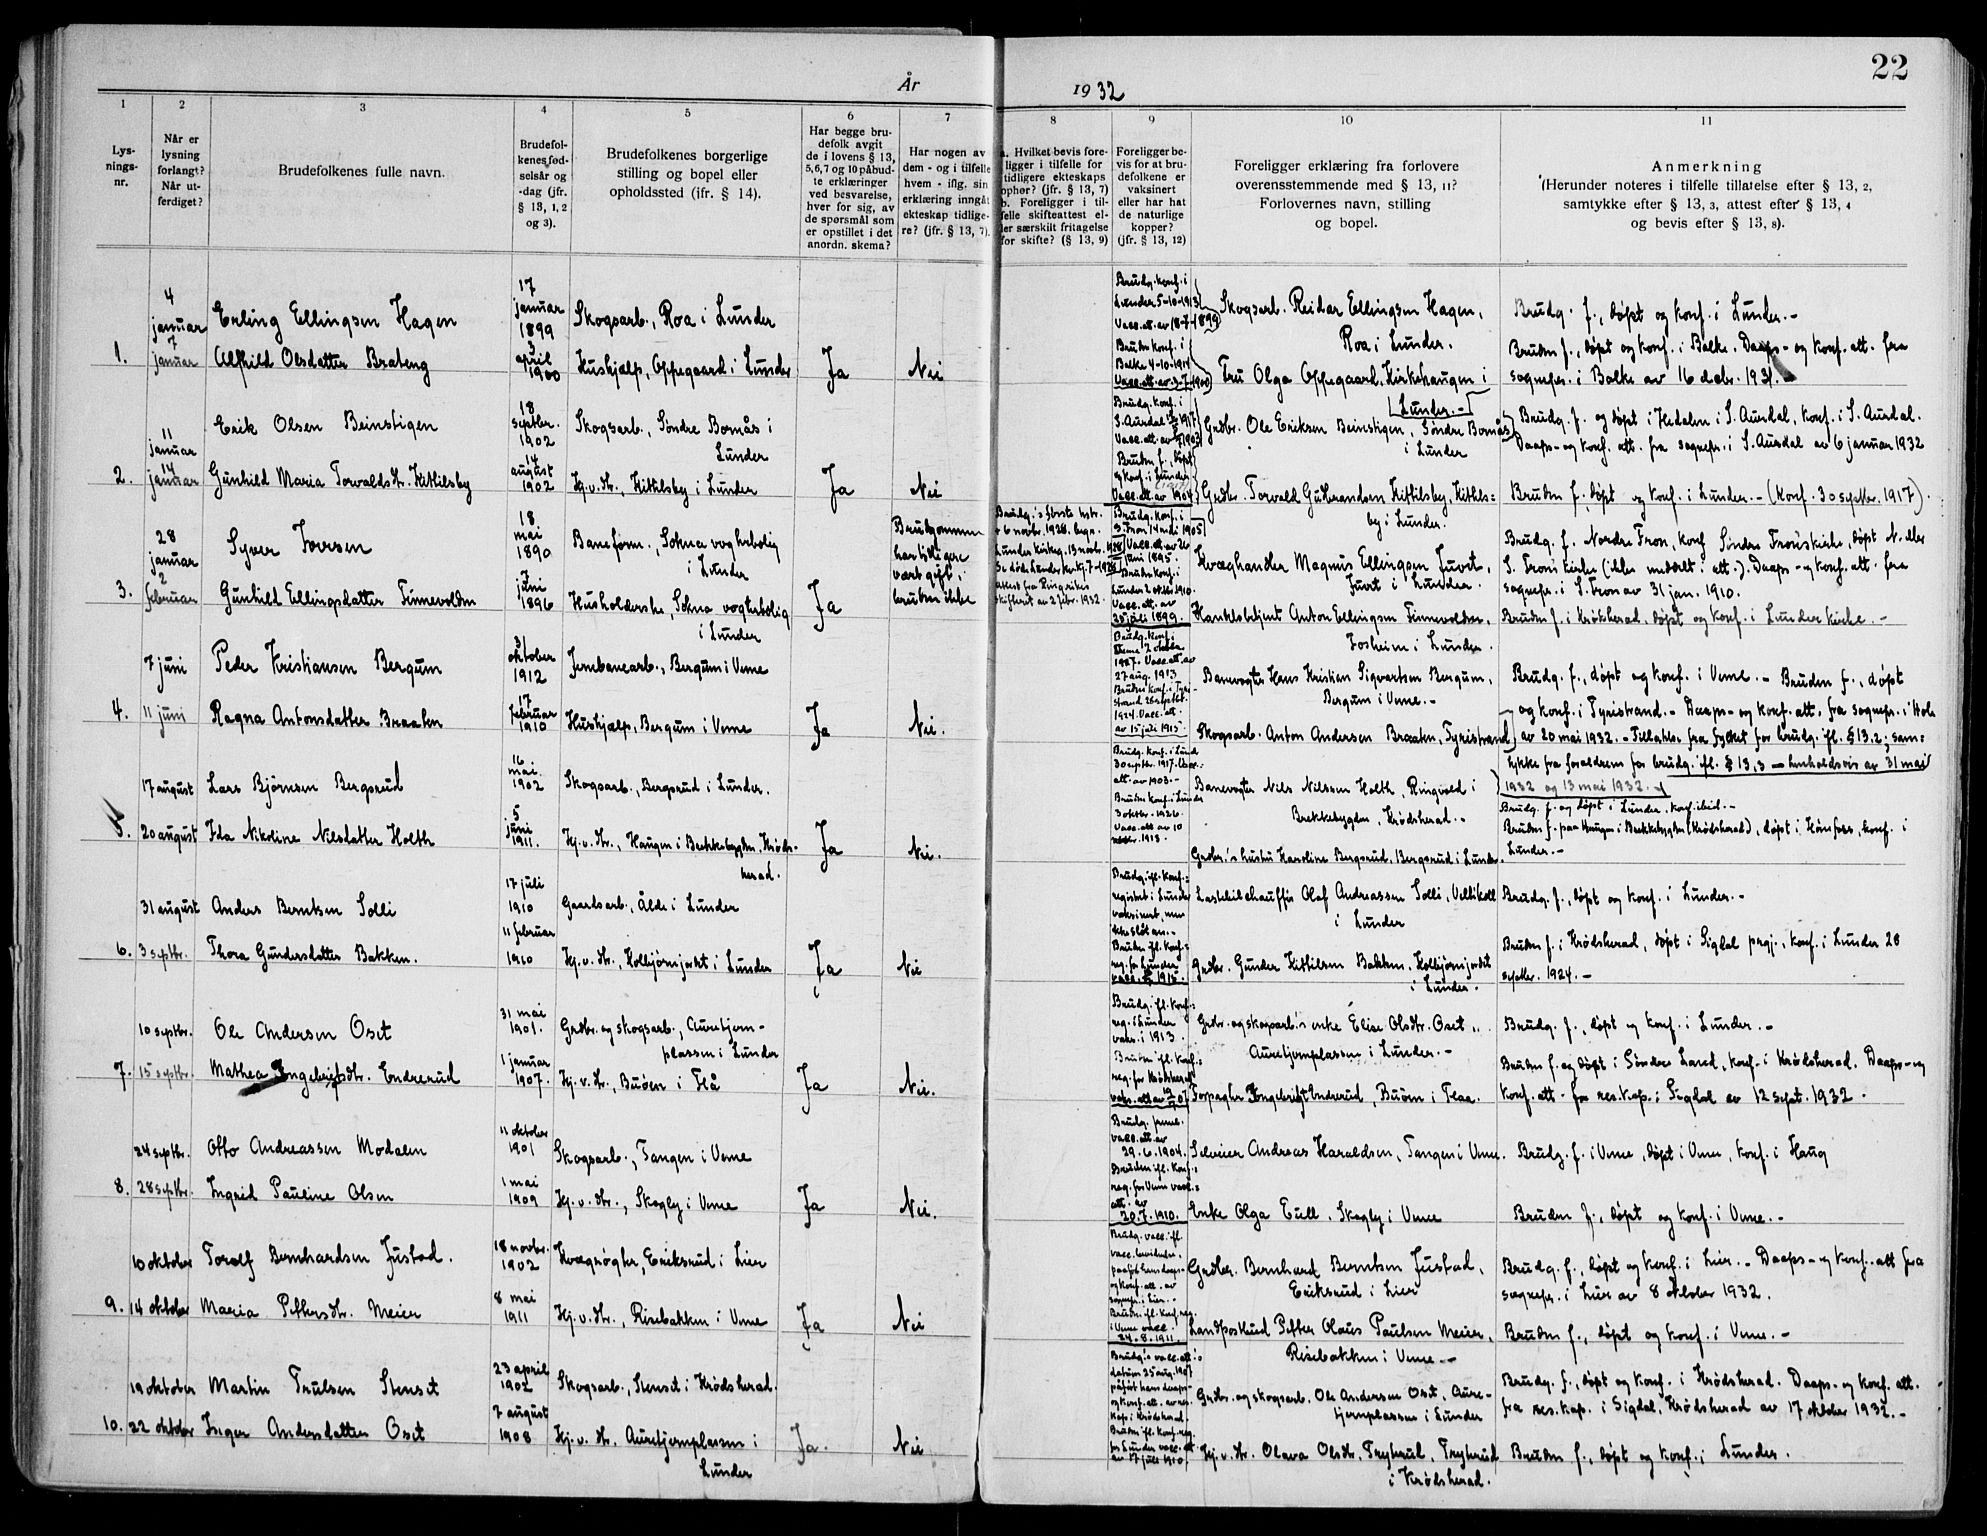 22
År 1932
1 2 3 4 5 6 7 8 9 10 11
Lys-
nings-
nr.
Når er
lysning
forlangt?
Når ut-
ferdiget?
Brudefolkenes fulle navn.
Brudefol-
kenes fød-
selsår og
-dag (jfr.
§ 13, 1, 2
og 3).
Brudefolkenes borgerlige
stilling og bopel eller
opholdssted (ifr. § 14).
Har begge bru-
defolk avgit
de i lovens § 13,
5,6,7 og 10 påbud-
te erklæringer
ved besvarelse,
hver for sig, av
de spørsmål som
er opstillet i det
anordn. skema?
Har nogen av
dem - og i tilfelle
hvem - iflg. sin
erklæring inngåt
ekteskap tidlige-
re? (jfr. § 13, 7).
a. Hvilket bevis fore-
ligger i tilfelle for
tidligere ekteskaps
ophør? (jfr. § 13, 7)
b. Foreligger i til-
felle skifteattest el-
ler særskilt fritagelse
for skifte? (§ 13, 9)
Foreligger be-
vis for at bru-
defolkene er
vaksinert
eller har hat
de naturlige
kopper?
(jfr. § 13, 12)
Foreligger erklæring fra forlovere
overensstemmende med § 13, 11?
Forlovernes navn, stilling
og bopel.
Anmerkning
(Herunder noteres i tilfelle tillatelse efter § 13, 2,
samtykke efter § 13, 3, attest efter § 13, 4
og bevis efter § 13, 8).
1.
4
januar
7
januar
Erling Ellingsen Hagen
Alfhild Olsdatter Brateng
17
januar
1899
3
april
1900
Skogsarb., Roa i Lunder
Hushjælp, Oppegaard i Lunder
Ja
Nei
Brudg. konf. i
Lunder 5-10-1913
Vacc. att. av 18-7-1899
Bruden konf. i
Balke 4-10-1914
Vacc. att. av 3-7-1900
Skogsarb. Reidar Ellingsen Hagen,
Roa i Lunder.
Fru Olga Oppegaard, Kirkehaugen i
Lunder. -
Brudg. f., døpt og konf. i Lunder. -
Bruden f., døpt og konf. i Balke. Daaps- og konf. att. fra
sognepr. i Balke av 16 decbr. 1931. -
2.
11
januar
14
januar
Erik Olsen Beinstigen
Gunhild Maria Torvaldsdtr. Kittilsby
18
septbr.
1902
14
august
1902
Skogsarb., Søndre Bornås i
Lunder
Hj.v.dtr., Kittilsby i Lunder
Ja
Nei
Brudg. konf. i
S. Aurdal 1917
Vacc. att. av 1903
Bruden f., døpt
og konf. i Lunder
Vacc. att. av 1904
Grdbr. Ole Eriksen Beinstigen, Søndre Bornås
i Lunder
Grdbr. Torvald Guttormsen Kittilsby, Kittils=
by i Lunder.
Brudg. f. og døpt i Hedalen i S. Aurdal, konf. i S. Aurdal.
Daaps- og konf. att. fra sognepr. i S. Aurdal av 6 januar 1932
Bruden f. døpt og konf. i Lunder. - (Konf. 30 septbr. 1917).
3.
28
januar
2
februar
Syver Iversen
Gunhild Ellingsdatter Finnevolden
18
mai
1890
7
juni
1896
Baneform., Sokna vogterbolig
i Lunder
Husholderske, Sokna vogterbolig
i Lunder
Ja
Brudgommen
har tidligere
vært gift,
bruden ikke
Brudg.'s første hstr.
+ 6 novbr. 1928. begr.
Lunder kirkeg. 13 novbr. 1928
attest fra Ringerikes
skifterett av 2 febr. 1932.
Brudg. konf. i
S. Fron 14 mai 1905
Vacc. att. av 26
juni 1895
Bruden konf. i
Lunder 2 oktbr. 1910.
Vacc. att. av
28 juli 1899.
Kvæghandler Magnus Ellingsen Juvet,
Juvet i Lunder.
Handelsbetjent Anton Ellingsen Finnevolden,
Fosheim i Lunder.
Brudg. f. Nordre Fron, konf Søndre Frons kirke, døpt N. eller
S. Frons kirke (ikke meddelt i att.). Daaps- og konf. att. fra
sognepr. i S. Fron av 31 jan. 1910.
Bruden f. i Krødsherad, døpt og konf. i Lunder kirke. -
4.
7 juni
11 juni
Peder Kristiansen Bergum
Ragna Antonsdatter Braaten
31
oktober
1912
17
februar
1910
Jernbanearb., Bergum i Veme
Hushjælp, Bergum i Veme
Ja
Nei.
Brudg. konf. i
Veme 2 oktbr.
1927. Vacc. att. av
27 aug. 1913
Bruden konf. i Tyri-
strand 28 septbr.
1924. Vacc. att.
av 15 juli 1915
Banevogter Hans Kristian Sigvartsen Bergum,
Bergum i Veme. -
Skogsarb. Anton Andersen Braaten, Tyristrand
Brudg. f., døpt og konf. i Veme. - Bruden f., døpt
og konf. i Tyristrand. - Daaps- og konf. att. fra sognepr. i Hole
av 20 mai 1932. - Tillatelse fra fylket for brudg. ifl. § 13.2; sam=
tykke fra foreldrene for brudg. ifl. § 13,3 - henholdsvis av 31 mai
1932 og 13 mai 1932. -
5.
17 august
20 august
Lars Bjørnsen Bergsrud
Ida Nikoline Nilsdatter Holth
16
mai
1902
5
juni
1911.
Skogsarb., Bergsrud i Lunder.
Hj.v.dtr., Haugen i Bekkebygden, Krøds-
herad.
Ja
Nei.
Brudg. konf. i Lund
30 septbr. 1917. Vacc.
att. av 1903. -
Bruden konf. i Lunder
3 oktbr. 1926
Vacc. att. av 10
1913.
Banevogter Nils Nilssen Holth, Ringvold i
Brekkebygden, Krødsherad. -
Grdbr.'s hustru Karoline Bergsrud, Bergsrud i Lunder.
Brudg. f. og døpt i Lunder, konf. ibid. -
Bruden f. paa Haugen i Brekkebygden (Krødsherad), døpt i Hønefoss, konf. i
Lunder. -
6.
31 august
3 septbr.
Anders Berntsen Solli
Thora Gundersdatter Bakken.
17 juli
1910
11 februar
1910
Gaardsarb., Ålde i Lunder
Hj.v.dtr., Kolbjørnjordet i Lunder
Ja
Nei
Brudg. ifl. konf.=
registret i Lunder
vaksinert, men
ikke slått an. -
Bruden ifl. konf.=
reg. for Lunder
vacc. 1915.
Lastebilchauffør Olaf Andreassen Solli, Vellikoll
i Lunder
Grdbr. Gunder Kittilsen Bakken, Kolbjørnjordet
i Lunder.
Brudg. f., døpt og konf. i Lunder. -
Bruden f. i Krødsherad, døpt i Sigdal prgj., konf. i Lunder 28
septbr. 1924. -
7.
10 septbr.
15 septbr.
Ole Andersen Oset
Mathea Engebretsdtr. Endrerud
31 mai
1901.
1 januar
1907.
Grdbr. og skogsarb., Auretjern-
plassen i Lunder
Hj.v.dtr., Buøen i Flå
Ja
Nei.
Brudg. ifl. konf.=
reg. i Lunder
vaks. i 1913.
Bruden ifl. konf.=
reg. for Krødsherad
vaks. att av 07
Grdbr. og skogsarb.'s enke Elise Olsdtr. Oset,
Auretjernplassen i Lunder. -
Forpagter Engebret Endrerud, Buøen i Flaa.
Brudg. f., døpt og konf. i Lunder. -
Bruden f. og døpt i Søndre Land, konf. i Krødsherad. Daaps- og
konf. att. fra res. kap. i Sigdal av 12 sept. 1932.
8.
24 septbr.
28 septbr.
Otto Andreassen Modalen
Ingrid Pauline Olsen
11 oktober
1901
1 mai
1909
Skogsarb., Tangen i Veme
Hj.v.dtr., Skogly i Veme
Ja
Nei.
Brudg.
vacc. att. av
29.6.1904.
Bruden ifl. konf.=
reg. for Veme vacc.=
att. av
20.7.1910.
Andreas Haraldsen, Tangen i Veme.
Enke Olga Eull, Skogly i Veme
Brudg. f. i Veme, døpt i Veme, konf. i Haug
Bruden f., døpt og konf. i Veme. -
9.
10 oktober
14 oktober
Torolf Bernhardsen Justad.
Maria Pettersdtr. Meier
18 novbr.
1902
8 mai
1911
Kvægrøgter, Eriksrud i Lier
Hj.v.dtr., Risebakken i Veme
Ja
Nei
Brudg. vacc. ifl.
vacc.
paaført hans daaps-
og konf. att. av
sognepr. i Lier. -
Bruden ifl. konf. reg.
i Veme vacc.
24.8.1911.
Grdbr. Bernhard Berntsen Justad,
Eriksrud i Lier
Landpostbud Petter Olaus Paulsen Meier,
Risebakken i Veme. -
Brudg. f., døpt og konf. i Lier. - Daaps- og konf. att fra
sognepr. i Lier av 8 oktober 1932.
Bruden f., døpt og konf. i Veme. -
10.
19 oktober
22 oktober
Martin Trulsen Stenset
Inger Andersdatter Oset
23 april
1902
7 august
1908
Skogsarb., Stenset i Krødsherad.
Hj.v.dtr. Auretjernplassen i
Lunder
Ja.
Nei
Brudg.'s vacc. att.'s
datum 25 aug. 1907
påført hans daaps-
og konf. att. av res.
kap. i Krødsherad.
Bruden ifl. konf. reg.
for Lunder vacc. att
av 17 juli 1910
Grdbr. og skogsarb. Ole Andersen Oset, Aure-
tjernplassen i Lunder
Hj.v.dtr. Olava Olsdtr. Trykrud, Trykrud
i Krødsherad.
Brudg. f., døpt og konf. i Krødsherad. Daaps- og konf. att.
fra res. kap. i Sigdal, Krødsherad av 17 oktober 1932. -
Bruden f., døpt og konf. i Lunder.